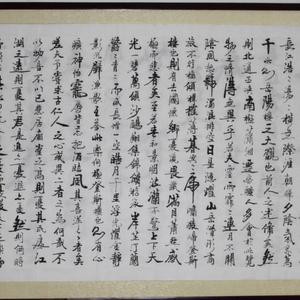 長江浩浩湯湯橫無際涯朝暉夕陰氣象萬
千此則岳陽樓之大觀也前人之述備矣然
則北通巫峽南極瀟湘遷客騷人多會於此覽
物之情得無異乎若夫霪雨霏霏連月不開
陰風怒號濁浪排空日星隱耀山岳潛形商
旅不行檣傾楫摧薄暮冥冥虎嘯猿啼登斯
樓也則有去國懷鄉憂讒畏譏滿目蕭然感
極而悲者矣至若春和景明波瀾不驚上下天
光一碧萬頃沙鷗翔集錦鱗游泳岸芷汀蘭
鬱鬱青青而或長煙一空皓月千里浮光躍金靜
影沉璧漁歌互答此樂何極登斯樓也則有心
曠神怡寵辱皆忘把酒臨風其喜洋洋者矣
嗟夫予嘗求古仁人之心或異二者之為何哉不
以物喜不以己悲居廟堂之高則憂其民處江
湖之遠則憂其君是進亦憂退亦憂然則